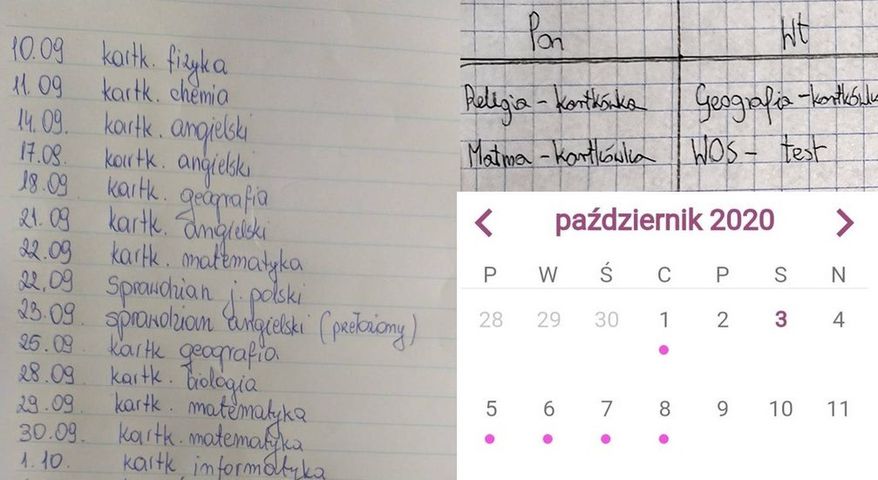 10.09 kartk. fizyka
11.09 kartk. chemia
14.09. kartk. angielski
17.09. kartk. angielski
18.09 kartk. geografia
21.09 kartk. angielski
22.09 kartk. matematyka
22.09 sprawdzian j. polski
23.09. sprawdzian angielski (przełożony)
25.09. kartk geografia.
28.09 kartk. biologia
29.09. kartk. matematyka
30.09. kartk. matematyka
1.10. kartk informatyka
Pon Wt
Religia - kartkówka Geografia - kartkówk
Matma - kartkówka WOS - test
październik 2020
P W Ś C P S N
28 29 30 1 2 3 4
5 6 7 8 9 10 11